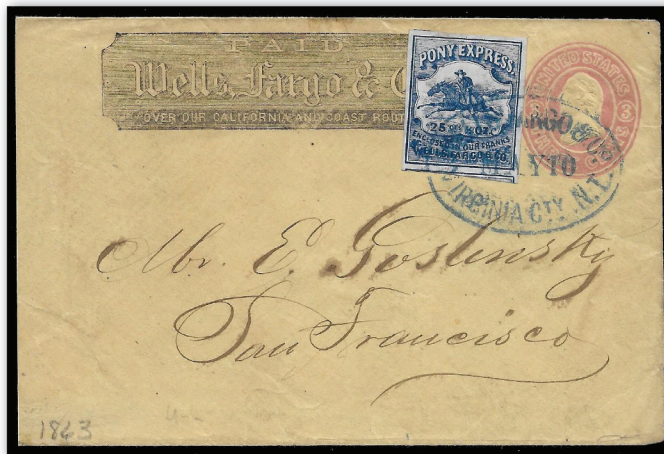 PAID
Wells, Fargo & C
OVER OUR CALIFORNIA AND COAST ROUT
PONY EXPRESS.
25 Cts ½ OZ.
ENCLOSED IN OUR FRANKS
WELLS, FARGO & CO.
UNITED STATES
3
RGO & CO
MAY 10
VIRGINIA CTY. N.T.
Mr. E. Goslinsky
San Francisco
1863